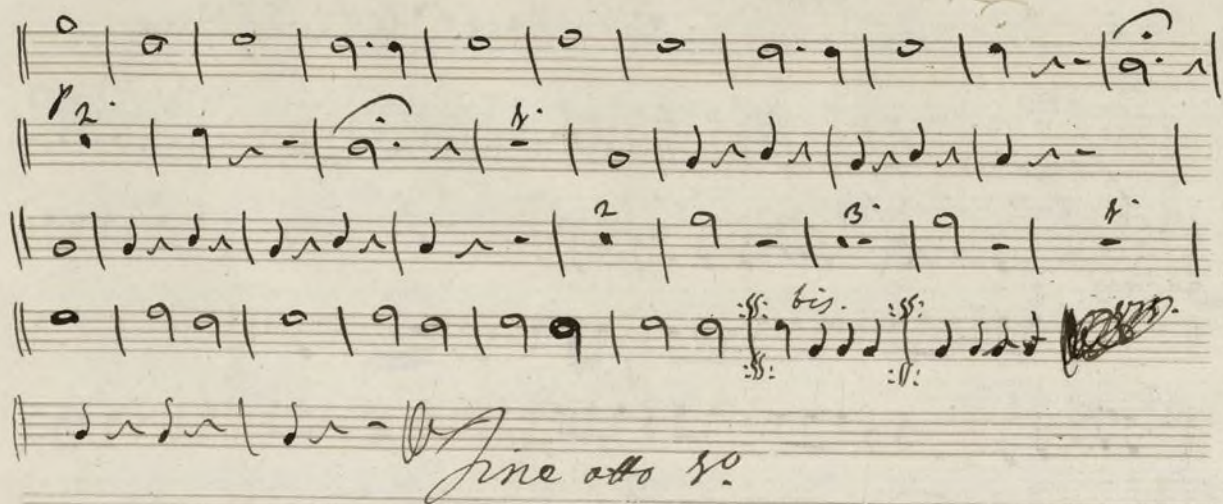 2.
2 3.
bis.
Fine atto 1º.